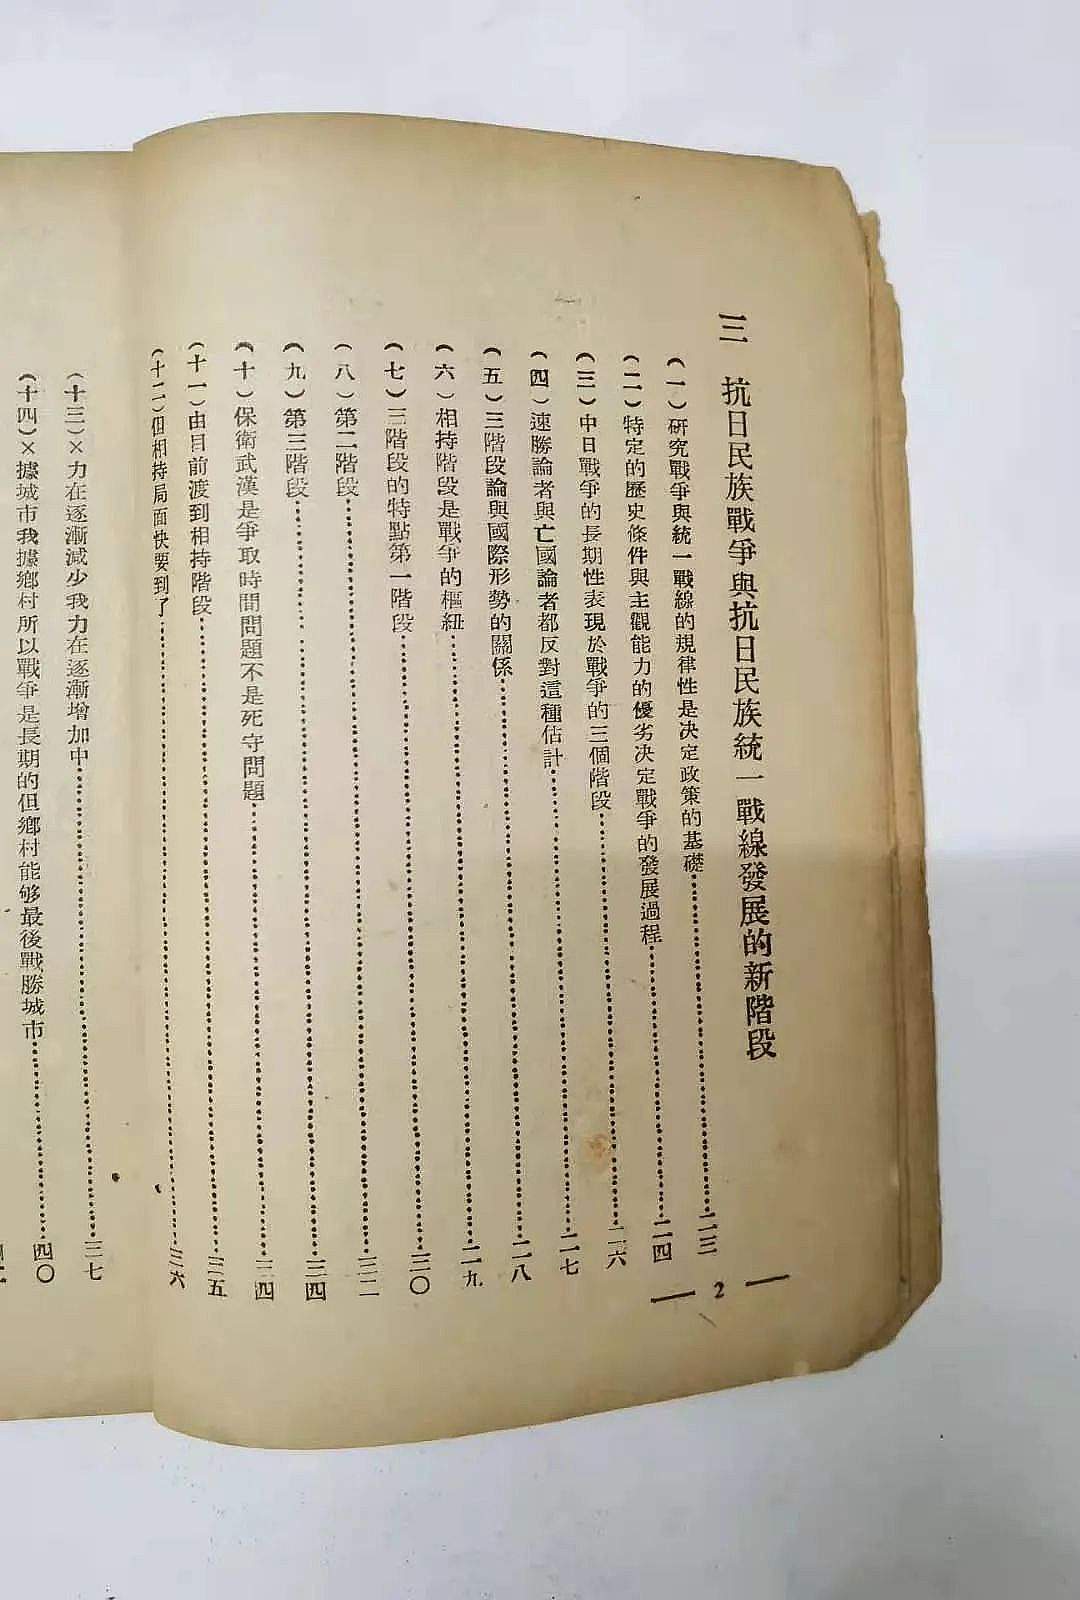 三 抗日民族戰爭與抗日民族統一戰線發展的新階段
(一)研究戰爭與統一戰線的規律性是决定政策的基礎……二三
(二)特定的歷史條件與主觀能力的優劣决定戰爭的發展過程……二四
(三)中日戰爭的長期性表現於戰爭的三個階段……二六
(四)速勝論者與亡國論者都反對這種估計……二七
(五)三階段論與國際形勢的關係……二八
(六)相持階段是戰爭的樞紐……二九
(七)三階段的特點第一階段……三〇
(八)第二階段……三二
(九)第三階段……三四
(十)保衛武漢是爭取時間問題不是死守問題……三四
(十一)由目前渡到相持階段……三五
(十二)但相持局面快要到了……三六
— 2 —
(十三)×力在逐漸減少我力在逐漸增加中……三七
(十四)×據城市我據鄉村所以戰爭是長期的但鄉村能够最後戰勝城市……四〇